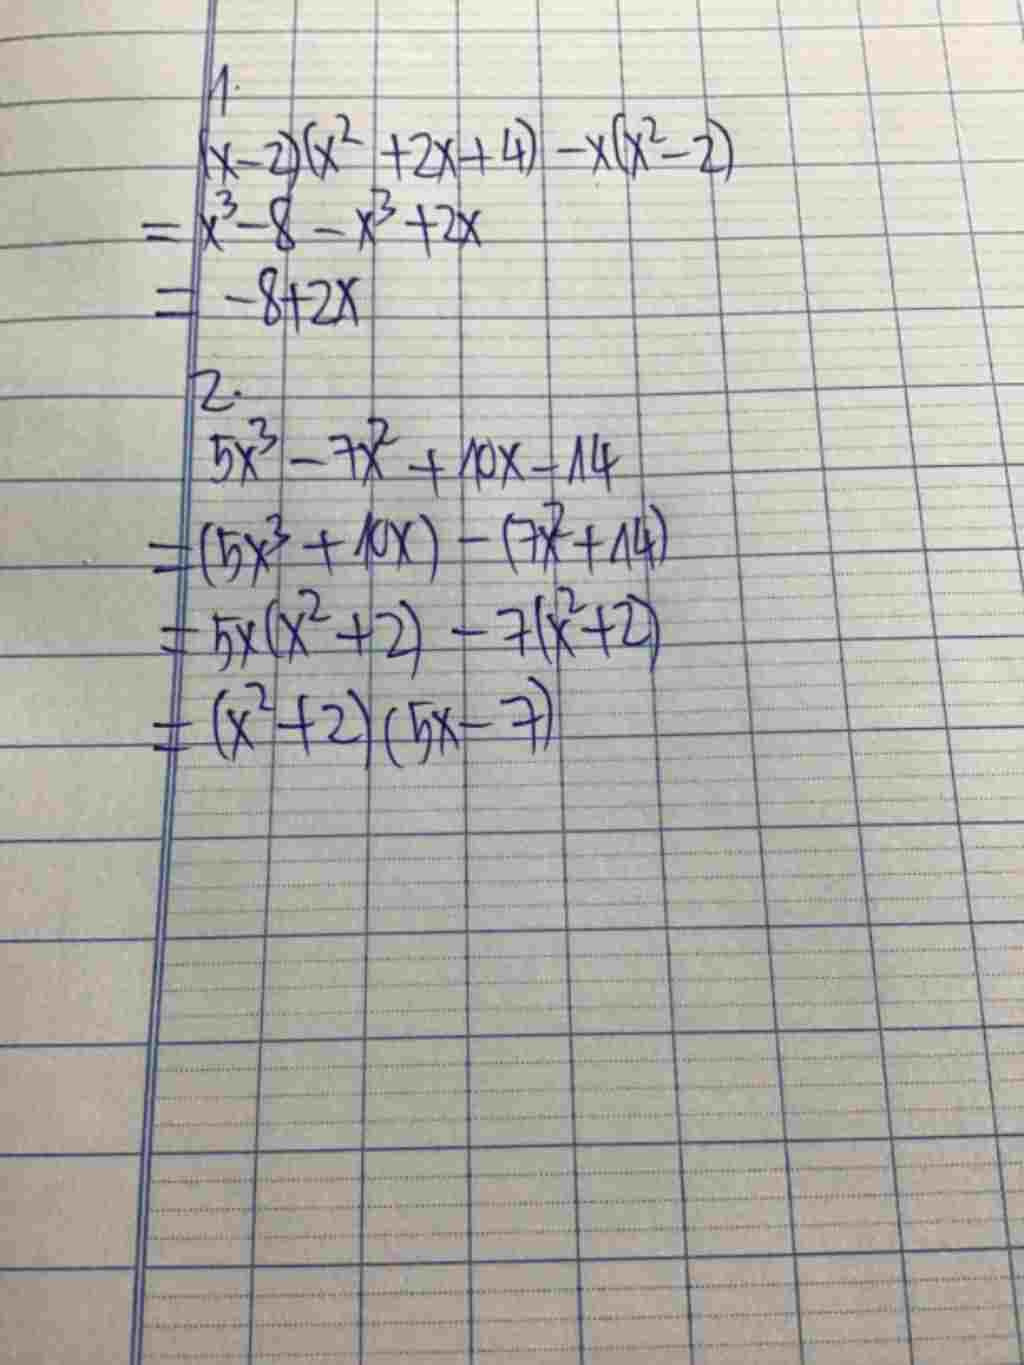 1.
(x-2)(x² +2x+4) -x(x²-2)
= x³-8 - x³ +2x
= -8+2x
2.
5x³ - 7x² + 10x - 14
= (5x³ + 10x) - (7x²+14)
= 5x(x²+2) - 7(x²+2)
= (x²+2)(5x-7)